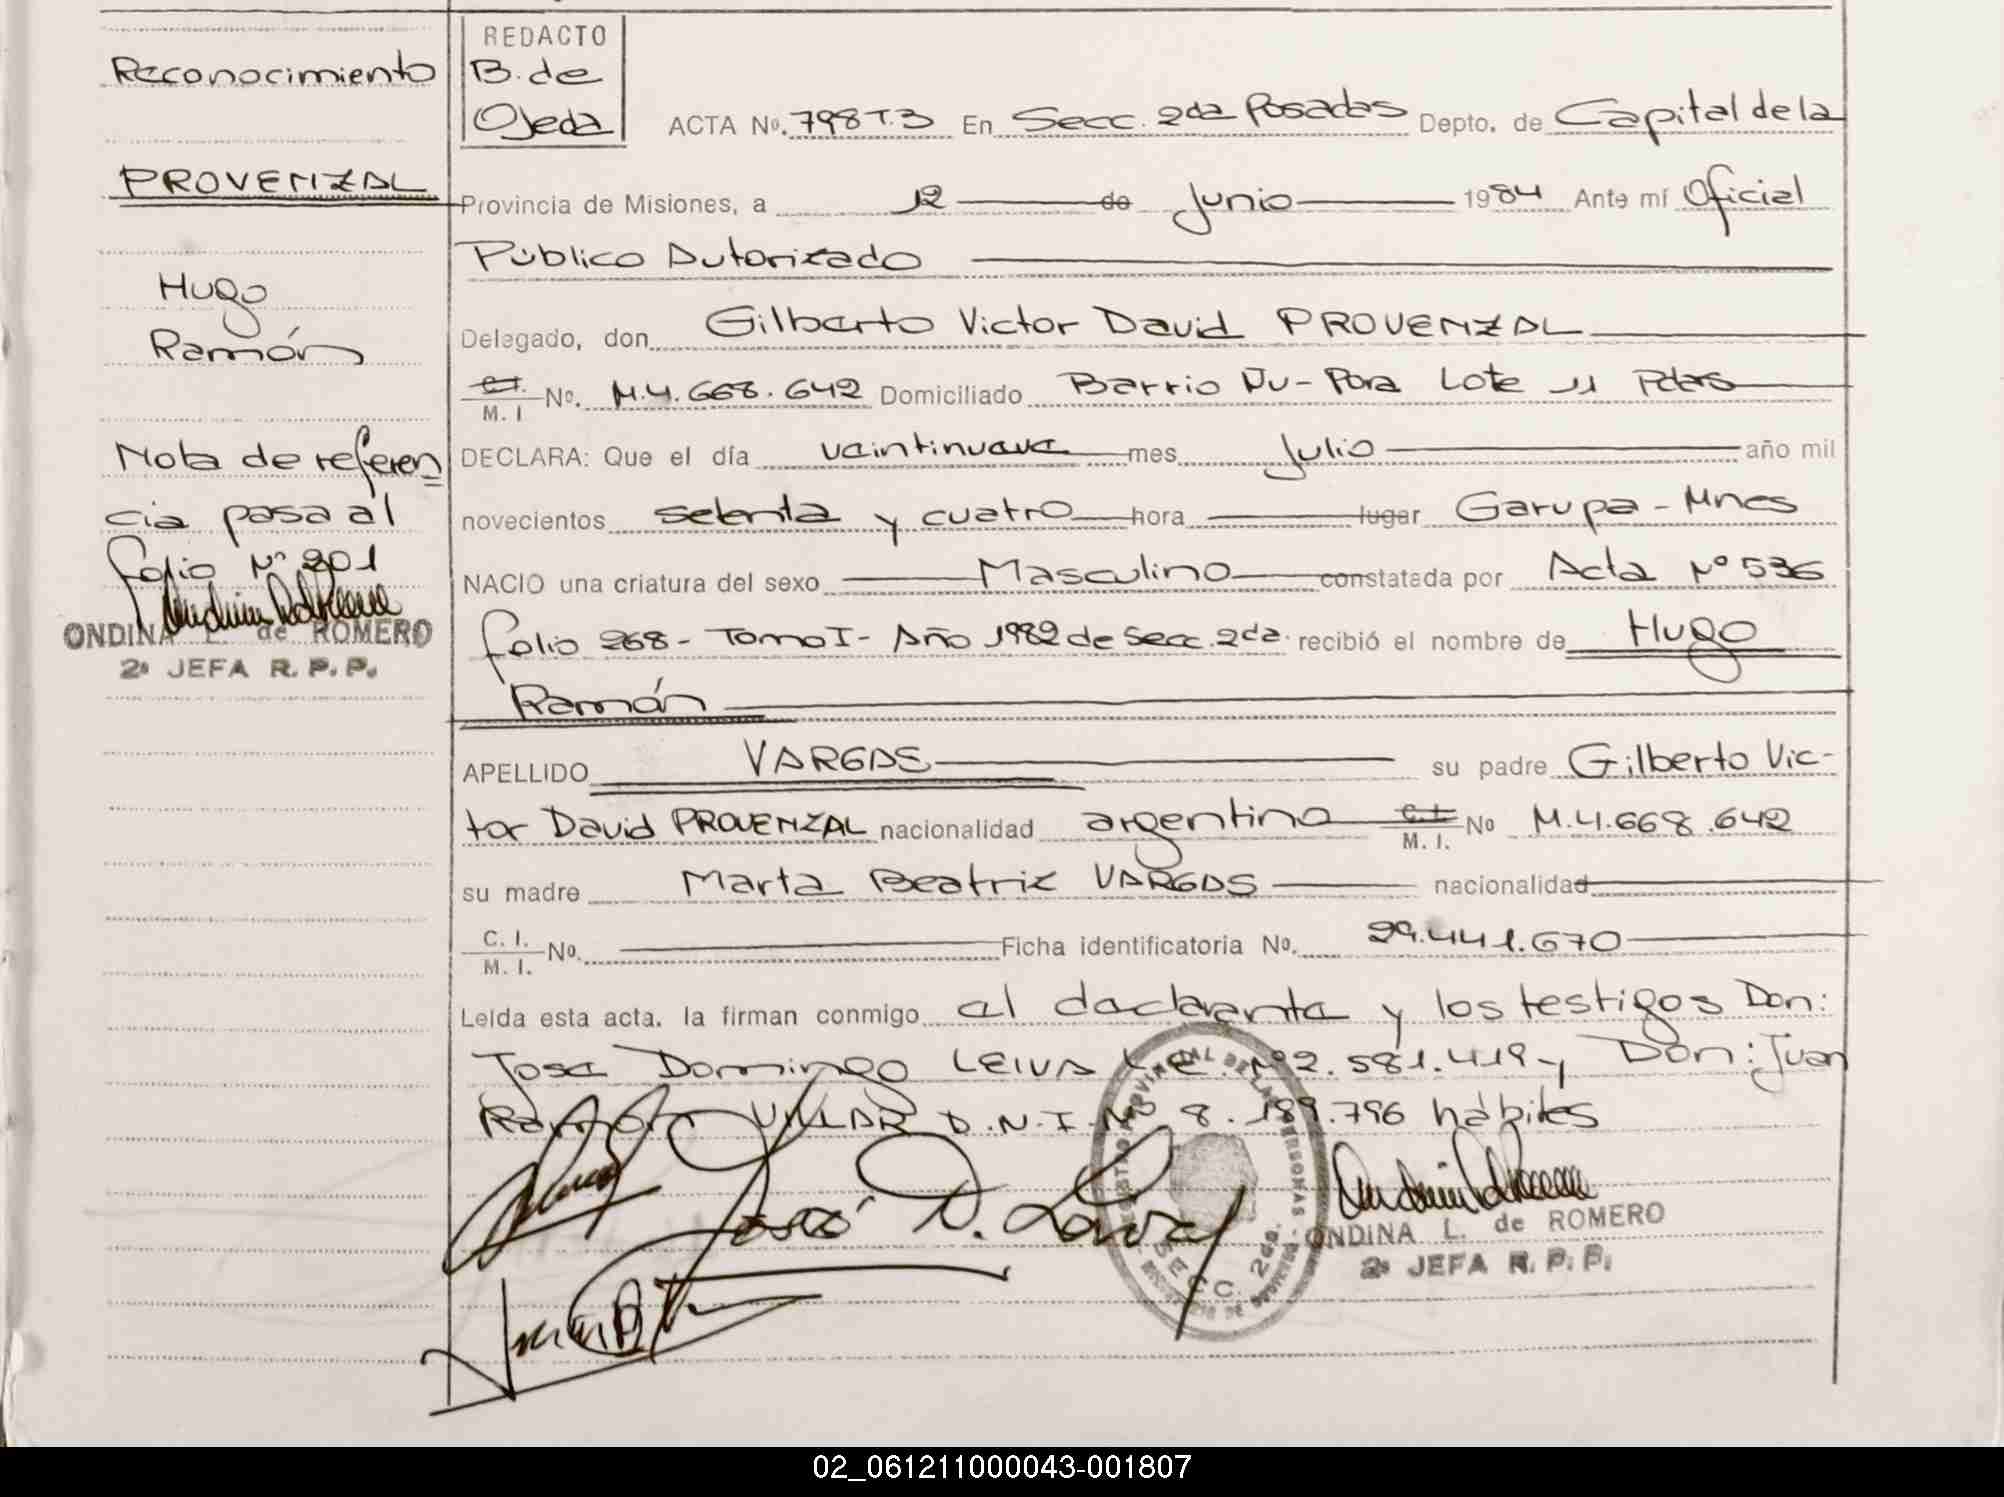 Reconocimiento
PROVENZAL
Hugo
Ramón
Nota de referen
cia pasa al
folio Nº 201
ONDINA L. de ROMERO
2ª JEFA R. P. P.
REDACTO
B. de
Ojeda
ACTA Nº. 798 T.3 En Secc. 2da Posadas Depto. de Capital de la
Provincia de Misiones, a 12 de Junio 1984 Ante mí Oficial
Público Autorizado
Delegado, don Gilberto Victor David PROVENZAL
C.I. M. I Nº. M.4.668.642 Domiciliado Barrio Ñu-Pora Lote 11 Pdas
DECLARA: Que el día veintinueve mes Julio año mil
novecientos setenta y cuatro hora lugar Garupa - Mnes
NACIO una criatura del sexo Masculino constatada por Acta Nº 536
folio 268 - Tomo I - Año 1982 de Secc. 2da. recibió el nombre de Hugo
Ramón
APELLIDO VARGAS su padre Gilberto Vic-
tor David PROVENZAL nacionalidad argentino C.I. M. I. No M.4.668.642
su madre Marta Beatriz VARGAS nacionalidad
C. I. M. I. Nº. Ficha identificatoria No. 29.441.670
Leída esta acta. la firman conmigo el declarante y los testigos Don:
Jose Domingo LEIVA L.E. Nº 2.581.419 y Don: Juan
Ramón VILLAR D.N.I. Nº 8.189.796 hábiles
José D. Leiva
REGISTRO PROVINCIAL DE LAS PERSONAS
SECC. 2da.
ONDINA L. de ROMERO
2ª JEFA R. P. P.
02_061211000043-001807